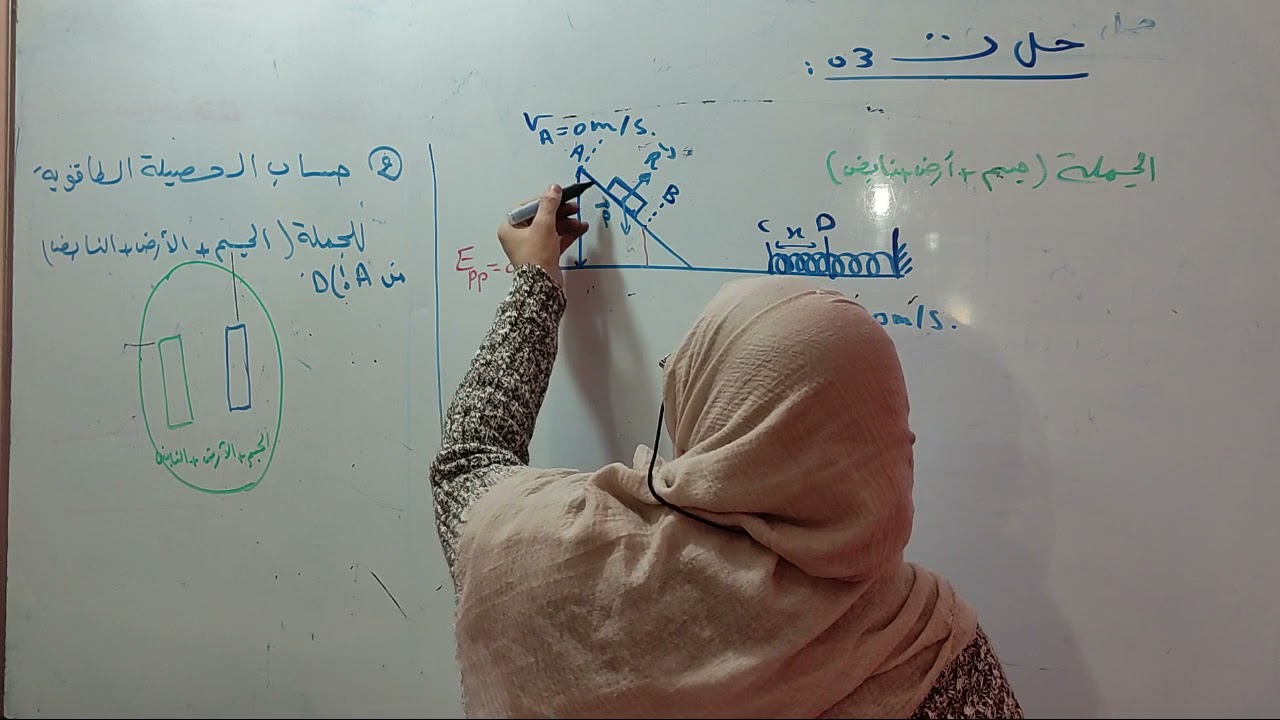 حل ت 03 :
الجملة (جسم + أرض + نابض)
V_A = 0 m/s.
A
R
B
P
C x D
E_pp = 0
0 m/s.
② حساب الحصيلة الطاقوية
للجملة (الجسم + الأرض + النابض)
من A إلى D
الجسم + الأرض + النابض